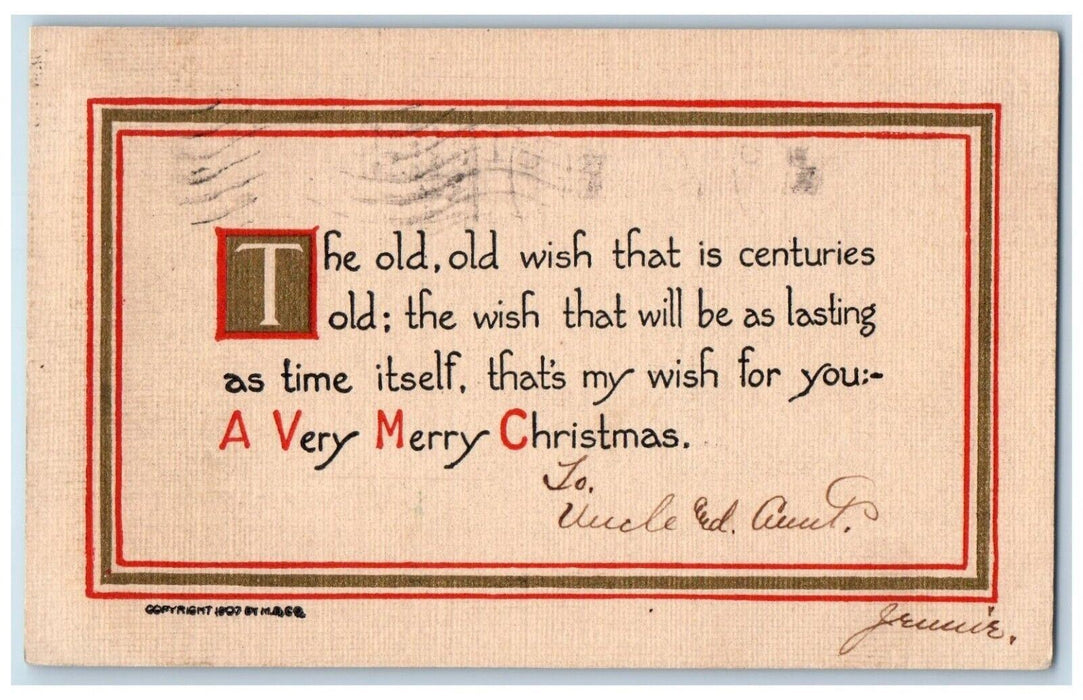 The old, old wish that is centuries
old; the wish that will be as lasting
as time itself, that's my wish for you:-
A Very Merry Christmas.
To.
Uncle Ed. Aunt.
COPYRIGHT 1907 BY M.B.CO.
Jennie.